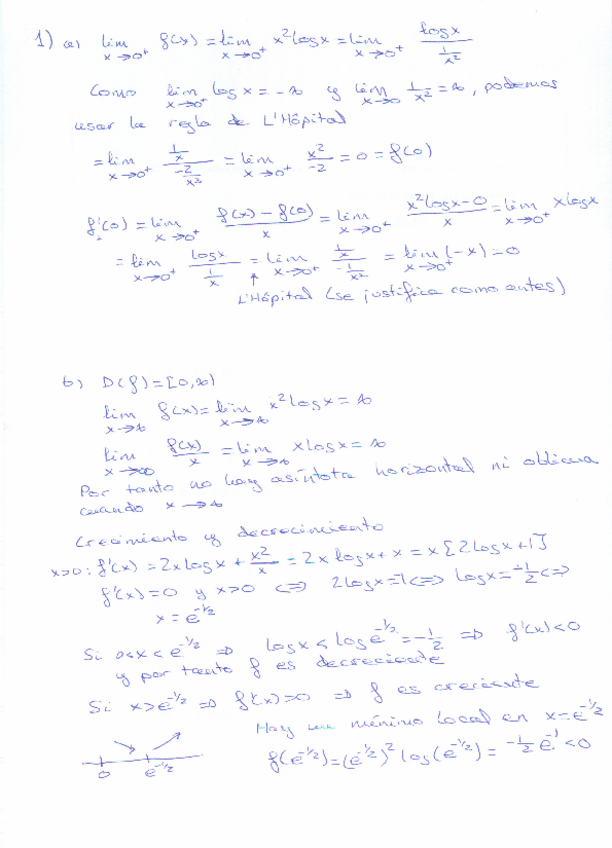 1) a) lim x→0⁺ f(x) = lim x→0⁺ x² log x = lim x→0⁺ log x / (1/x²)
Como lim x→0⁺ log x = -∞ y lim x→0 1/x² = ∞, podemos
usar la regla de L'Hôpital
= lim x→0⁺ (1/x) / (-2/x³) = lim x→0⁺ x²/-2 = 0 = f(0)
f'(0) = lim x→0⁺ (f(x) - f(0))/x = lim x→0⁺ (x² log x - 0)/x = lim x→0⁺ x log x
= lim x→0⁺ log x / (1/x) = lim x→0⁺ (1/x) / (-1/x²) = lim x→0⁺ (-x) = 0
↑
L'Hôpital (se justifica como antes)
b) D(f) = [0,∞)
lim x→∞ f(x) = lim x→∞ x² log x = ∞
lim x→∞ f(x)/x = lim x→∞ x log x = ∞
Por tanto no hay asíntota horizontal ni oblicua
cuando x→∞
Crecimiento y decrecimiento
x>0: f'(x) = 2x log x + x²/x = 2x log x + x = x [2 log x + 1]
f'(x) = 0 y x>0 ⇔ 2 log x = -1 ⇔ log x = -1/2 ⇔
x = e^{-1/2}
Si 0<x<e^{-1/2} ⇒ log x < log e^{-1/2} = -1/2 ⇒ f'(x)<0
y por tanto f es decreciente
Si x>e^{-1/2} ⇒ f'(x)>0 ⇒ f es creciente
Hay un mínimo local en x = e^{-1/2}
f(e^{-1/2}) = (e^{-1/2})² log(e^{-1/2}) = -1/2 e^{-1} < 0
0 e^{-1/2}